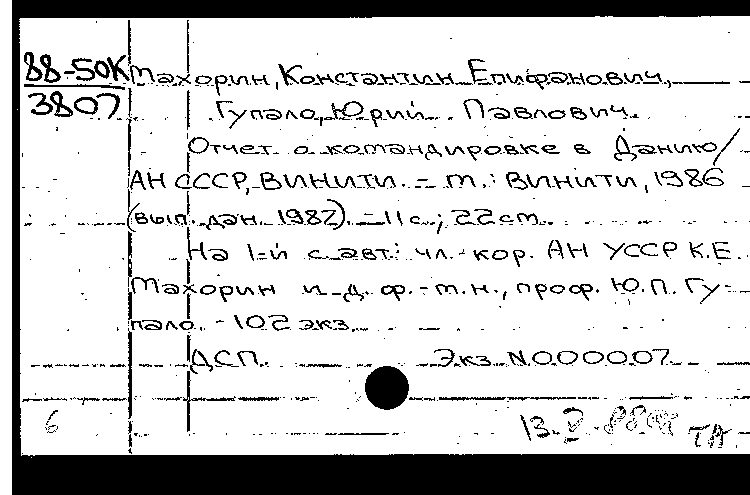 88-50К Махорин, Константин Епифанович,
3807 Гупало, Юрий Павлович.
Отчет о командировке в Данию/
АН СССР, ВИНИТИ. - М.: ВИНИТИ, 1986
(вып. дан. 1987). - 11 с.; 22 см.
На 1-й с авт.: чл.-кор. АН УССР К.Е.
Махорин и д. ф.-м.н., проф. Ю.П. Гу-
пало. - 102 экз.
ДСП. Экз N000007
6 13.V.88 ТА